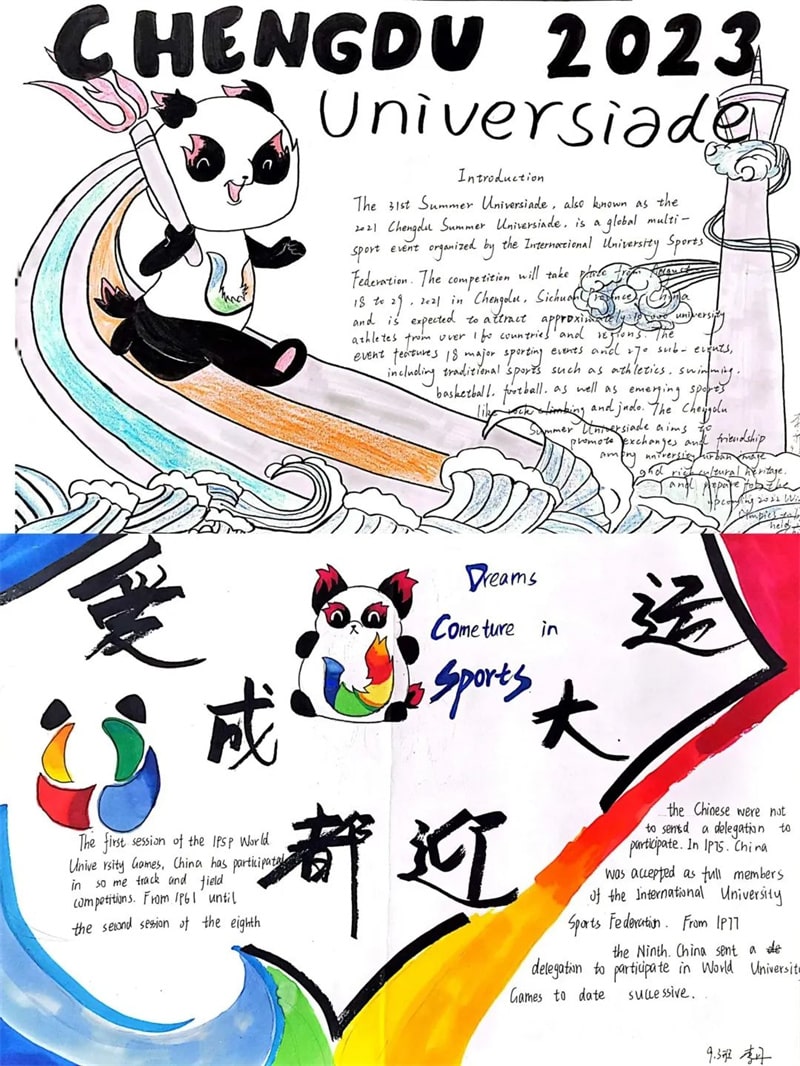 CHENGDU 2023
Universiade
Introduction
The 31st Summer Universiade, also known as the
2021 Chengdu Summer Universiade, is a global multi-
sport event organized by the International University Sports
Federation. The competition will take place from August
18 to 29, 2021 in Chengdu, Sichuan Province, China
and is expected to attract approximately university
athletes from over countries and regions. The
event features 18 major sporting events and 270 sub-events,
including traditional sports such as athletics. swimming.
basketball. football. as well as emerging sports
like rock climbing and judo. The Chengdu
Summer Universiade aims to
promote exchanges and friendship
among university urban image
and rich cultural heritage.
and prepare for the
upcoming 2022
held
爱
成
都
迎
大
运
Dreams
Come ture in
Sports
The first session of the IPSP World
University Games, China has participated
in so me track and field
competitions. From IP61 until
the second session of the eighth
...the Chinese were not
to sentd a delegation to
participate. In IP75. China
was accepted as full members
of the International University
Sports Federation. From IP77
the Ninth. China sent a de
delegation to participate in World University
Games to date successive..
9.3班